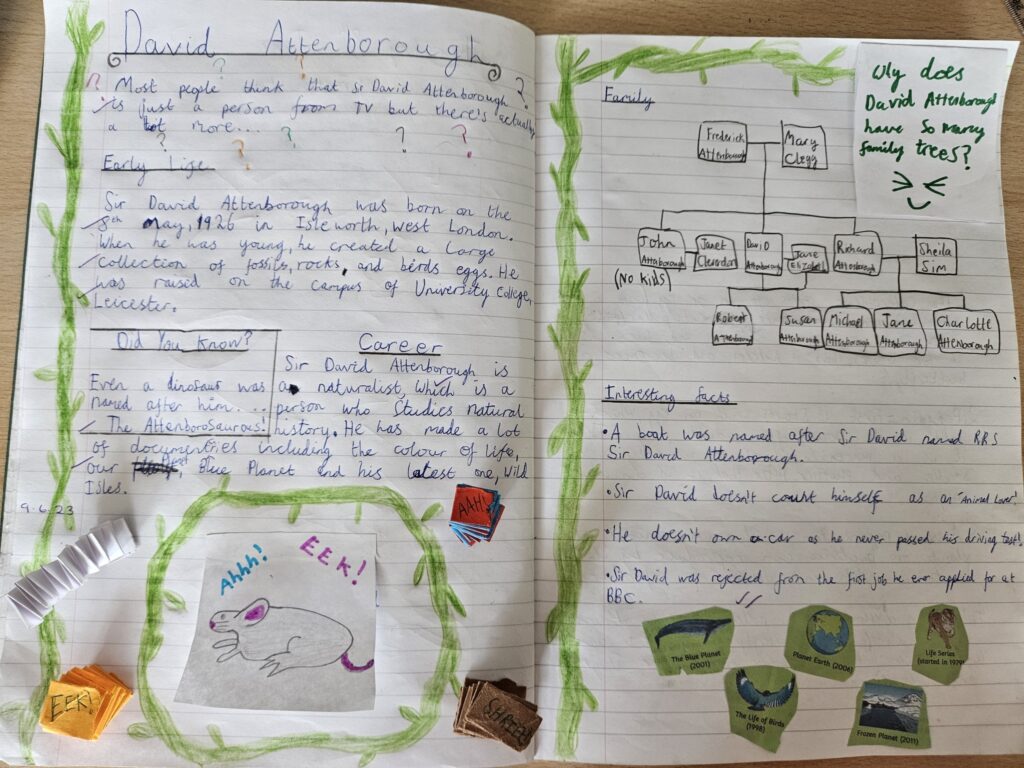 David Attenborough
Most people think that sir David Attenborough
is just a person from TV but there's actually
a lot more...
? ? ? ? ? ? ? ?
Early Life
Sir David Attenborough was born on the
8th May, 1926 in Isleworth, West London.
When he was young, he created a large
collection of fossils, rocks, and birds eggs. He
was raised on the campus of University College,
Leicester.
Did You Know?
Even a dinosaur was
named after him...
The Attenborosaurous!
Career
Sir David Attenborough is
a naturalist, which is a
person who studies natural
history. He has made a lot
of documentries including the colour of life,
our Planet, Blue Planet and his latest one, Wild
Isles.
9.6.23
Ahhh!
EEK!
AAH!
EEK!
Family
Why does
David Attenborough
have so many
family trees?
Frederick
Attenborough
Mary
Clegg
John
Attenborough
(No kids)
Janet
Cleardon
David
Attenborough
Jane
Elizabeth
Richard
Attenborough
Sheila
Sim
Robert
Attenborough
Susan
Attenborough
Michael
Attenborough
Jane
Attenborough
Charlotte
Attenborough
Interesting facts
• A boat was named after Sir David named RRS
Sir David Attenborough.
• Sir David doesn't count himself as an 'Animal Lover'.
• He doesn't own a car as he never passed his driving test!
• Sir David was rejected from the first job he ever applied for at
BBC.
The Blue Planet
(2001)
Planet Earth (2006)
Life Series
(started in 1979)
The Life of Birds
(1998)
Frozen Planet (2011)